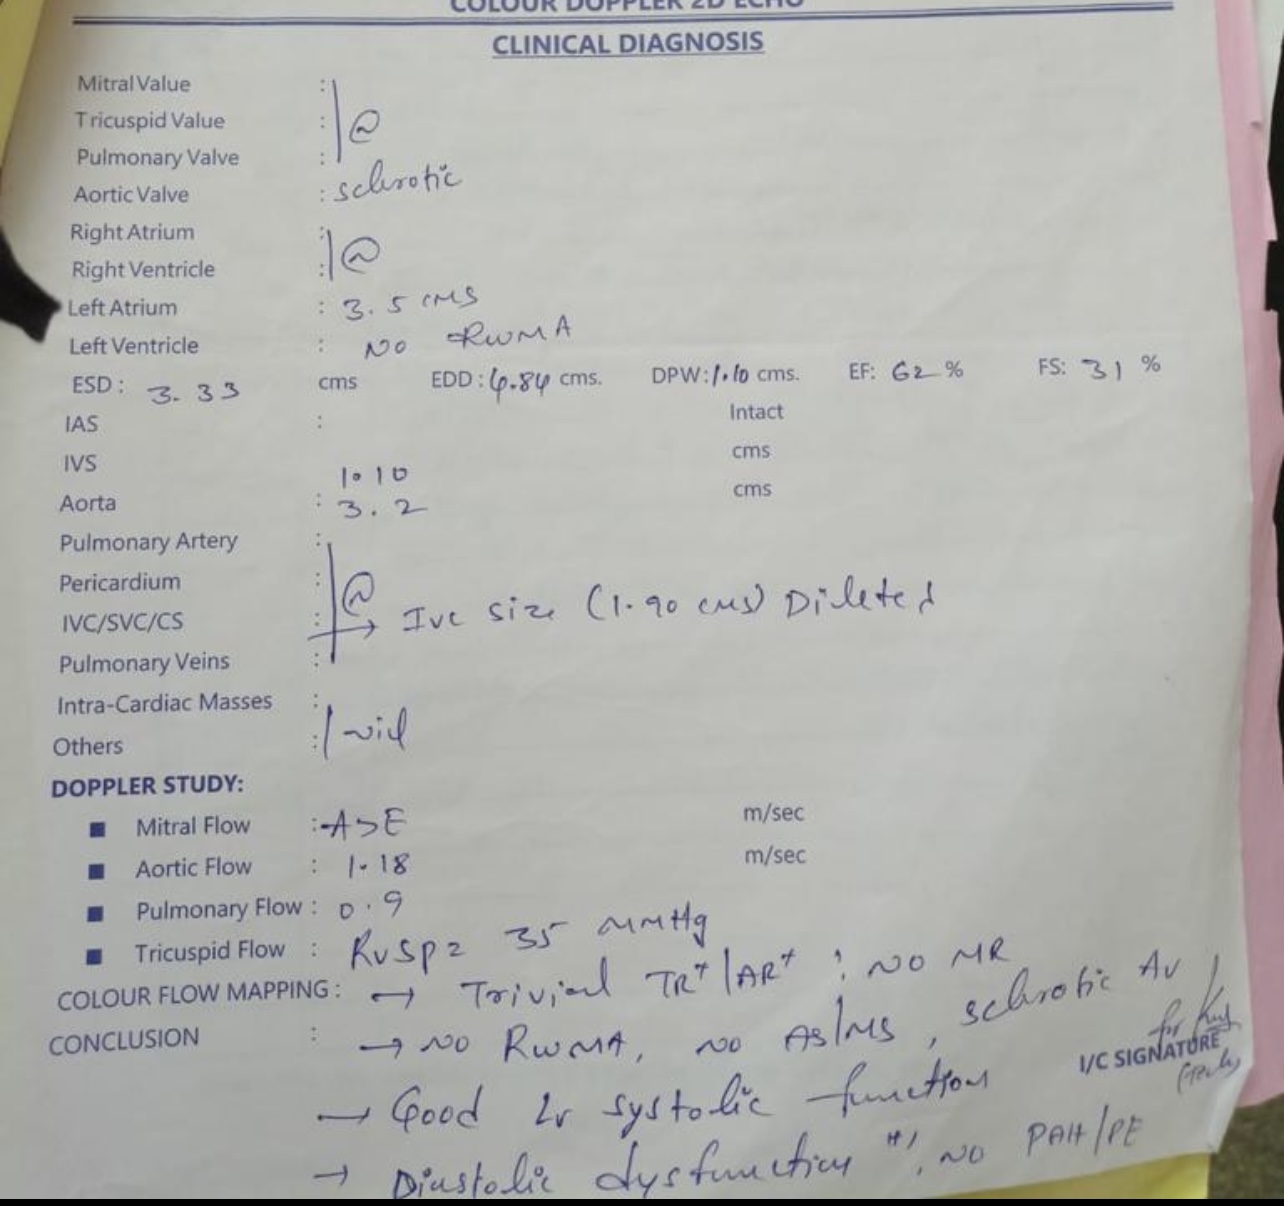 COLOUR DOPPLER 2D ECHO
CLINICAL DIAGNOSIS
Mitral Value :
Tricuspid Value : Ⓝ
Pulmonary Valve :
Aortic Valve : sclerotic
Right Atrium :
Right Ventricle : Ⓝ
Left Atrium : 3.5 cms
Left Ventricle : NO RWMA
ESD : 3.33 cms EDD : 4.84 cms. DPW : 1.10 cms. EF: 62 % FS: 31 %
IAS : Intact
IVS 1.10 cms
Aorta : 3.2 cms
Pulmonary Artery :
Pericardium : Ⓝ
IVC/SVC/CS : → IVC size (1.90 cms) Dileted
Pulmonary Veins :
Intra-Cardiac Masses :
Others : Nil
DOPPLER STUDY:
Mitral Flow : A>E m/sec
Aortic Flow : 1.18 m/sec
Pulmonary Flow : 0.9
Tricuspid Flow : RVSP= 35 mmHg
COLOUR FLOW MAPPING : → Trivial TR+/AR+ : NO MR
CONCLUSION : → NO RWMA, NO AS/MS, sclerotic AV
I/C SIGNATURE
→ Good LV systolic function
→ Diastolic dysfunction +, NO PAH/PE